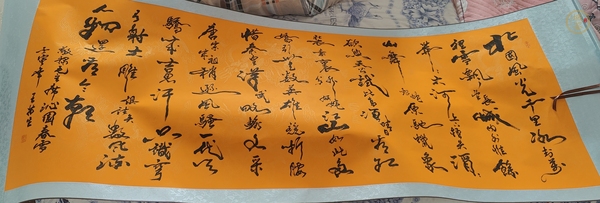 北国风光千里冰封万
里雪飘望长城内外惟馀
莽莽大河上下顿失滔
滔山舞银蛇原驰蜡象
欲与天公试比高须晴日看红
装素裹分外妖娆江山如此多
娇引无数英雄竞折腰
惜秦皇汉武略输文采
唐宗宋祖稍逊风骚一代天
骄成吉思汗只识弯
弓射大雕俱往矣数风流
人物还看今朝
毛主席沁园春雪